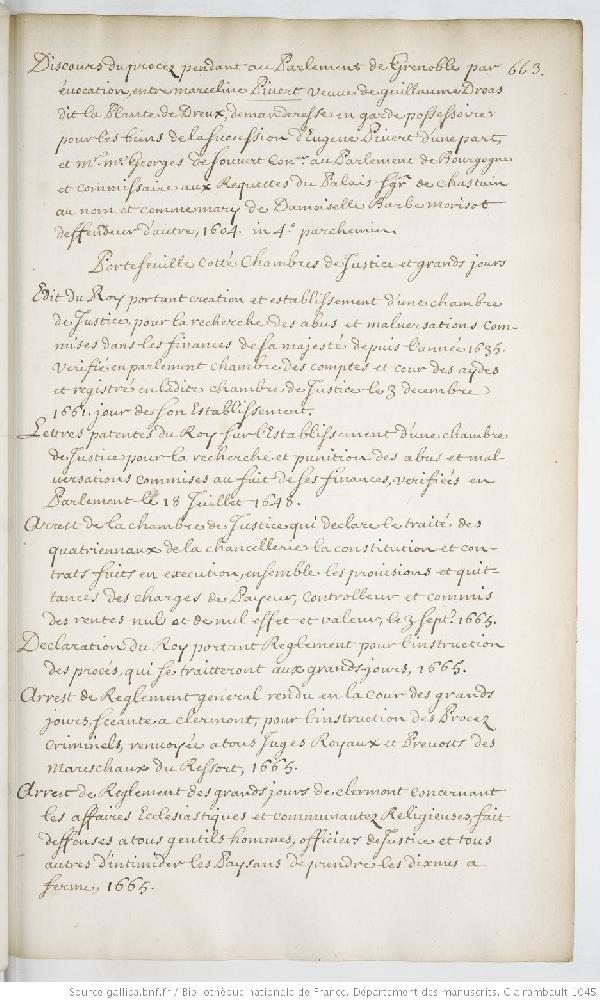 Discours du procez pendant au Parlement de Grenoble par 663.
évocation, entre marceline Pivert veuve de guillaume Droas
dit la Plante de Dreux, demanderesse en garde possessoire
pour les biens de la succession d'Eugene Pivert d'une part,
et Mre. Mre. Georges de Souvert Conr. au Parlement de Bourgogne
et commissaire aux Requettes du Palais Sgr. de Chastain
au nom et comme mary de Damoiselle Barbe morisot
deffendeur d'autre, 1604. in 4.° parchemin.
Portefeuille cotté Chambres de Justice et grands jours
Edit du Roy portant creation et establissement d'une chambre
de Justice, pour la recherche des abus et malversations com-
mises dans les finances de sa majesté depuis l'année 1635.
Verifié en parlement chambre des comptes et cour des aydes
et registré en ladite chambre de Justice le 3 decembre
1661. jour de son Establissement.
Lettres patentes du Roy sur l'Establissement d'une chambre
de Justice pour la recherche et punition des abus et mal-
versations commises au fait de ses finances, verifiées en
Parlement le 18 Juillet 1648.
Arrest de la chambre de Justice qui declare le traité des
quatriennaux de la chancellerie la constitution et con-
trats faits en execution, ensemble les provisions et quit-
tances des charges de Payeur, Controlleur et commis
des rentes nuls et de nul effet et valeur, le 3 septe. 1665.
Declaration du Roy portant Reglement pour l'instruction
des procés, qui se traitteront aux grands jours, 1665.
Arrest de Reglement general rendu en la cour des grands
jours, sceante a clermont, pour l'instruction des Procez
criminels, renvoyée a tous Juges Royaux et Prevosts des
Mareschaux du Ressort, 1665.
Arrest de Reglement des grands jours de clermont concernant
les affaires Ecclesiastiques et communautez Religieuses, fait
deffenses a tous gentils hommes, officiers de Justice et tous
autres d'intimider les Paysans de prendre les dixmes a
ferme, 1665.
Source gallica.bnf.fr / Bibliothèque nationale de France. Département des manuscrits. Clairambault 1045